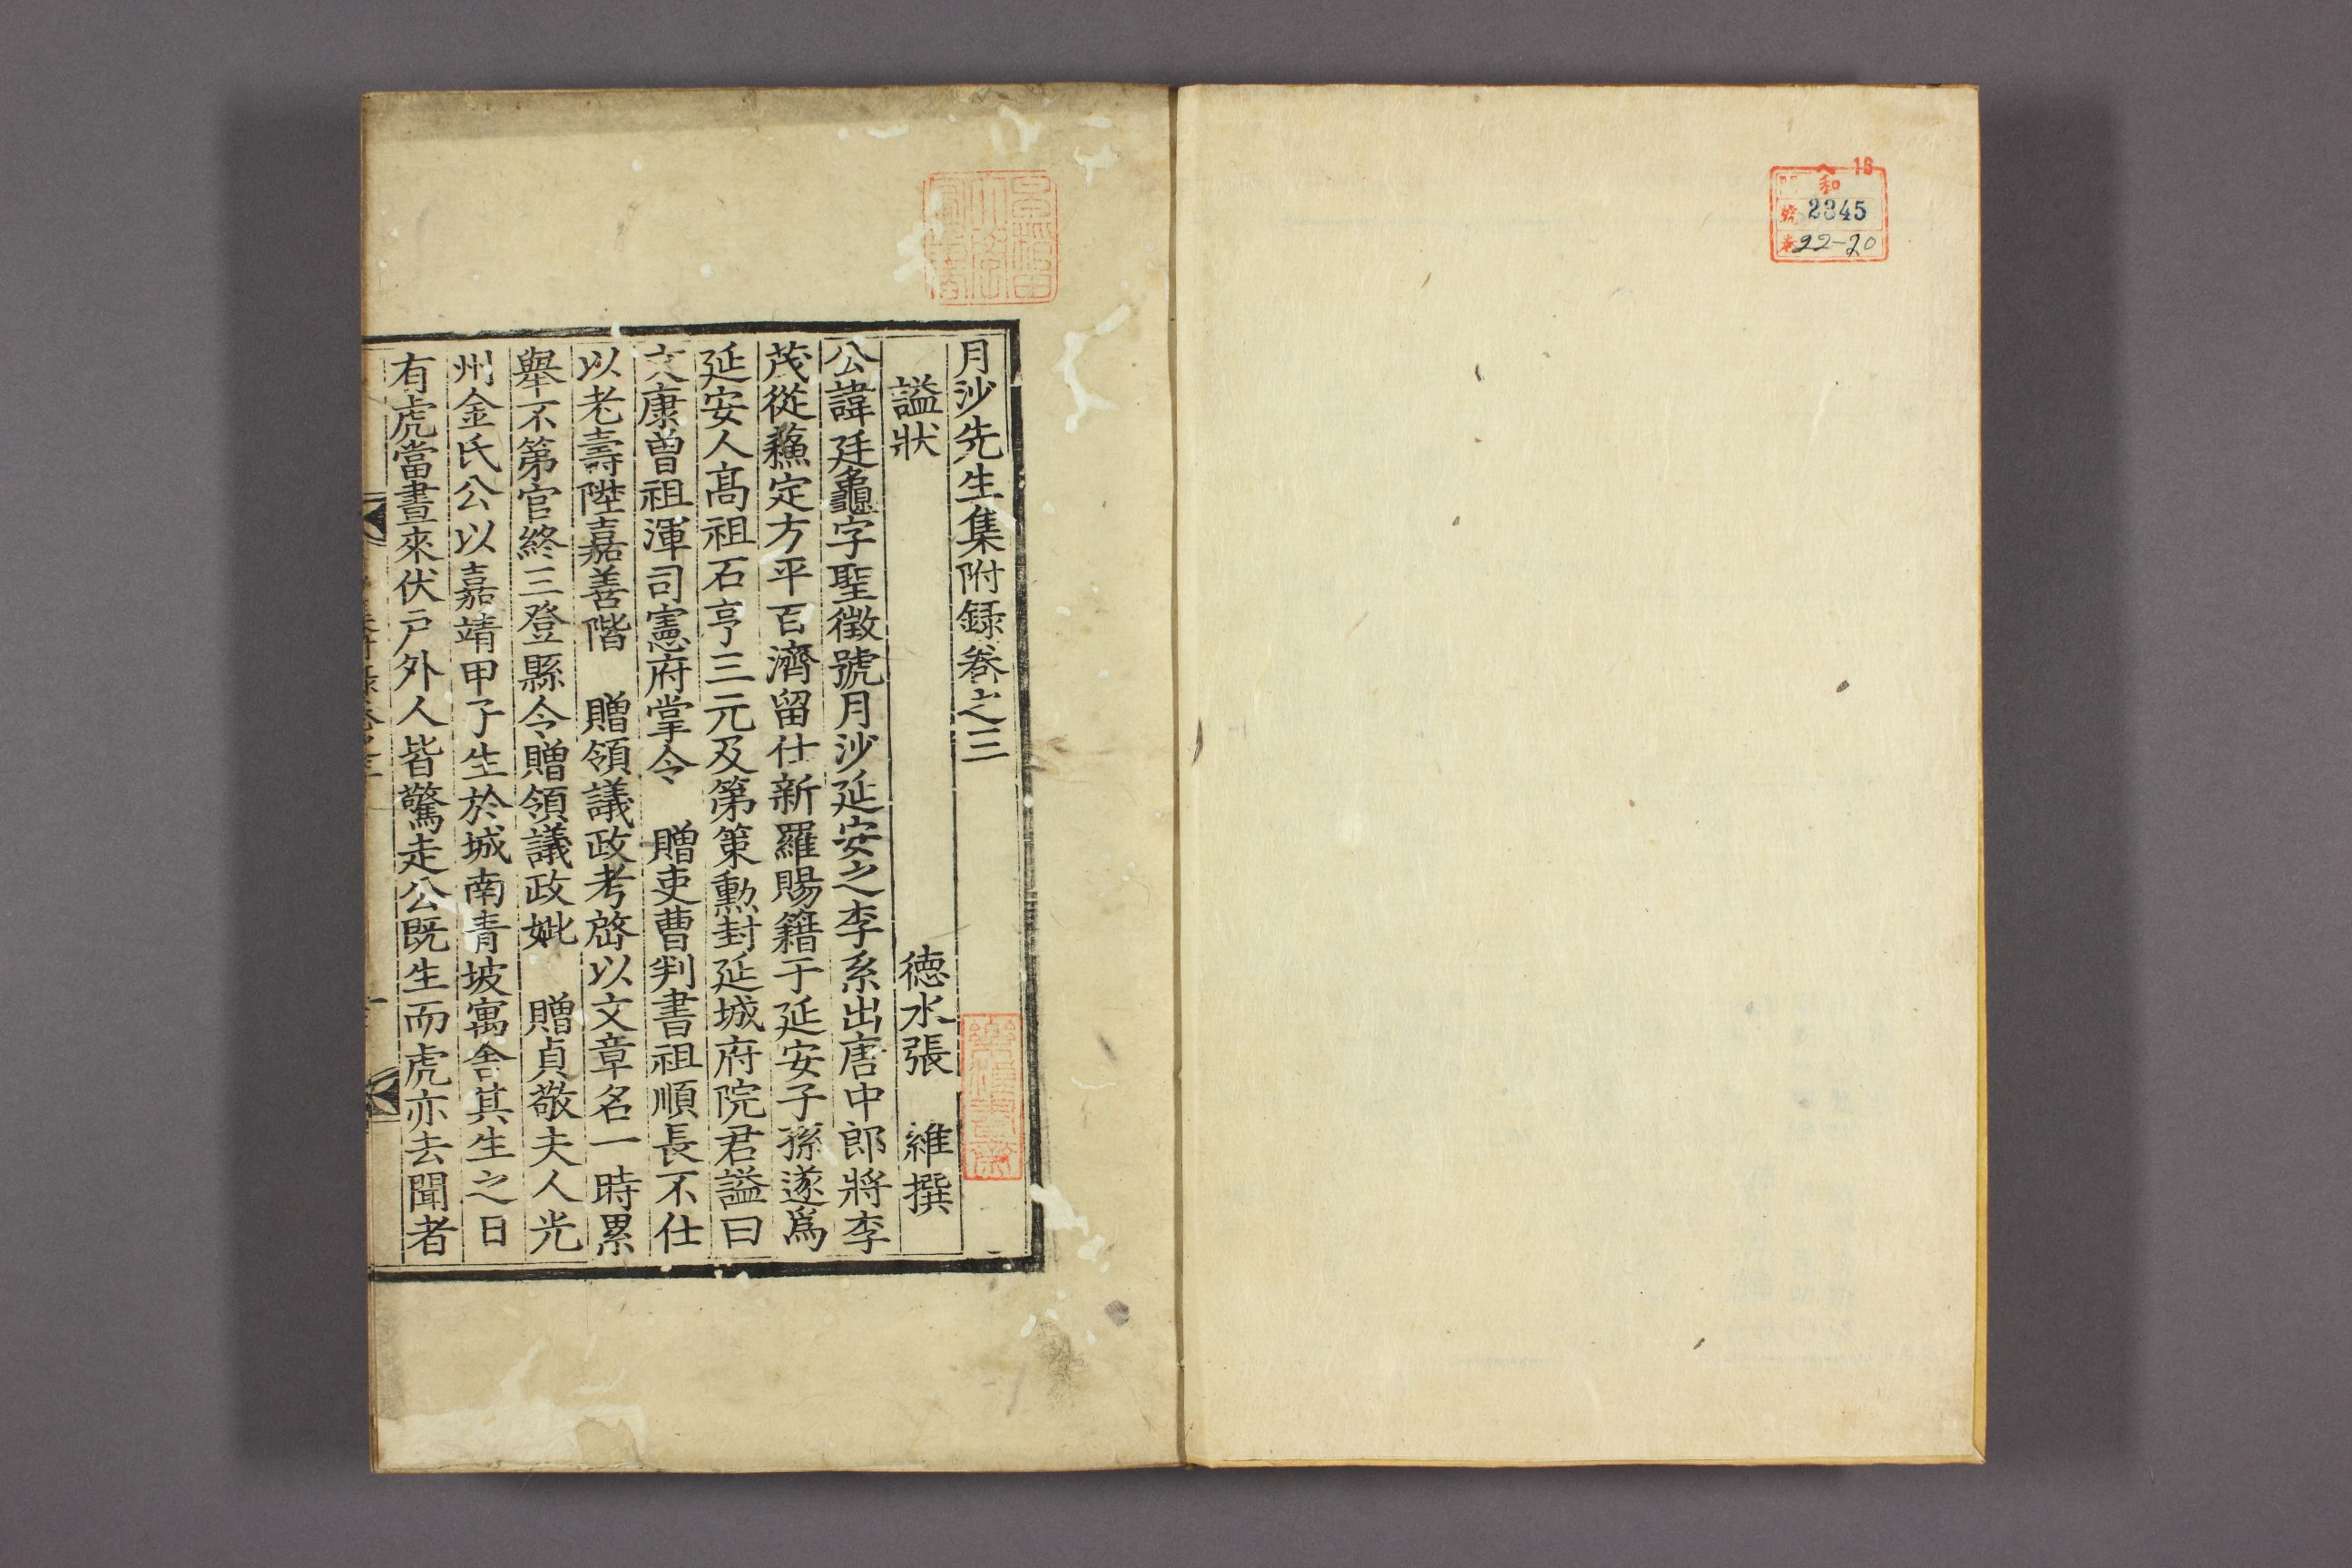 16
和
2845
22-20
月沙先生集附録卷之三
諡狀 德水張 維撰
公諱廷龜字聖徵號月沙延安之李系出唐中郎將李
茂從蘇定方平百濟留仕新羅賜籍于延安子孫遂爲
延安人高祖石亨三元及第策勲封延城府院君諡曰
文康曾祖渾司憲府掌令 贈吏曹判書祖順長不仕
以老壽陞嘉善階 贈領議政考啓以文章名一時累
舉不第官終三登縣令贈領議政妣 贈貞敬夫人光
州金氏公以嘉靖甲子生於城南青坡寓舍其生之日
有虎當晝來伏戶外人皆驚走公既生而虎亦去聞者